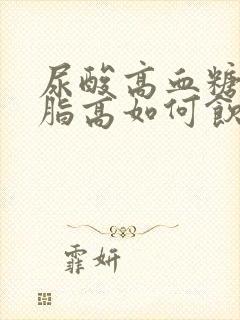 尿酸高血糖
脂高如何飲
霏妍